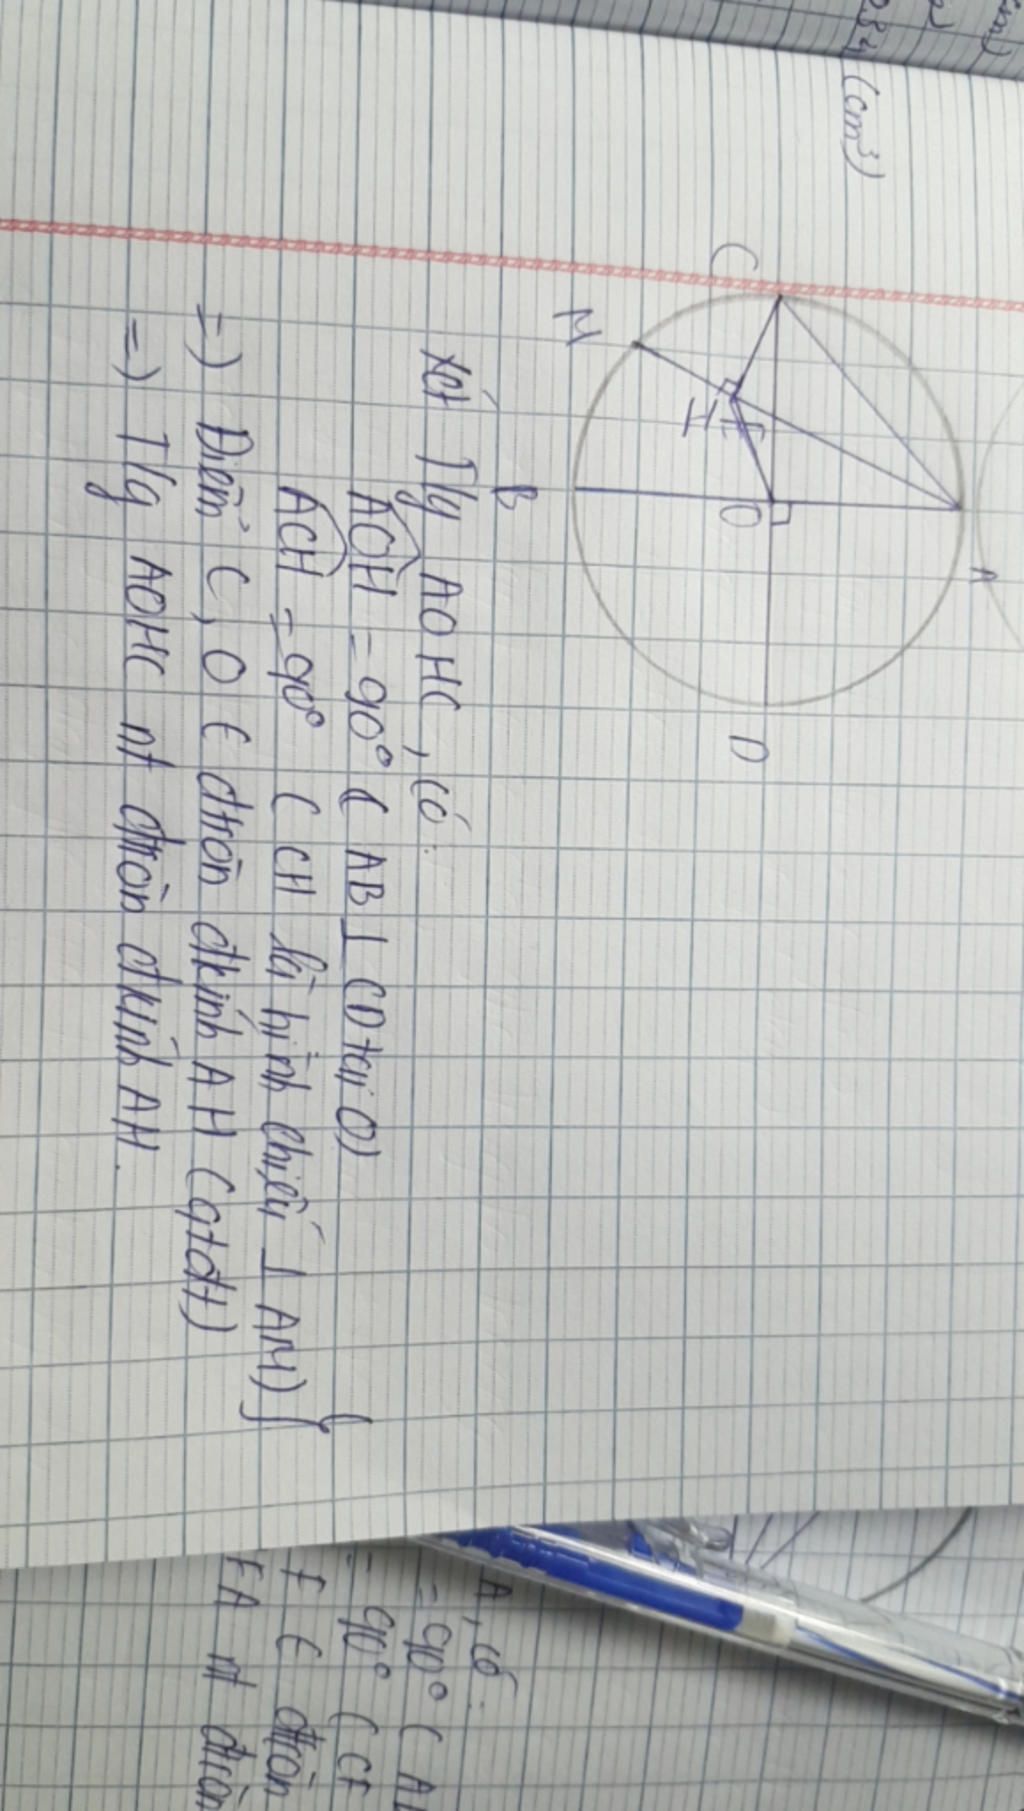 (cm³)
A
C
M
H
E
O
B
D
Xét Tg AOHC, có:
AOH = 90° (AB ⊥ CD tại O)
ACH = 90° (CH là hình chiếu ⊥ AM)
=) Điểm C, O ∈ đtròn đkính AH (qtđt)
=) Tg AOHC nt đtròn đkính AH.
A, có:
= 90° (
= 90° (CF
F ∈ đtròn
FA nt đtròn